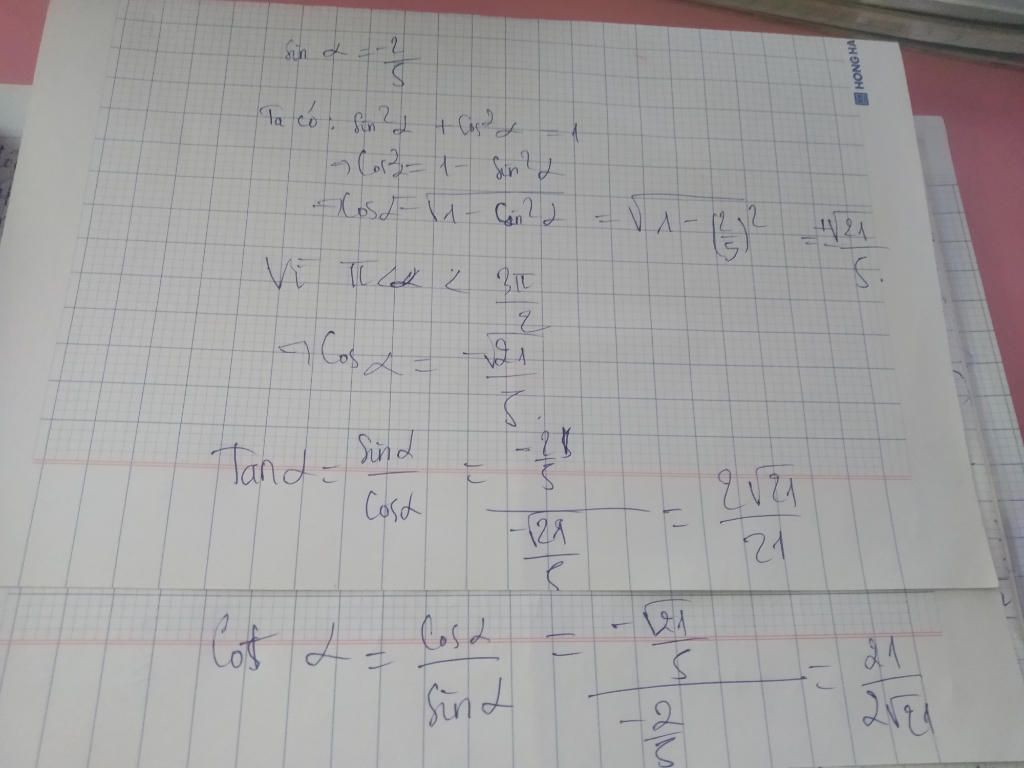 sin α = -2/5
HONG HA
Ta có: sin²α + cos²α = 1
→ Cos²α = 1 - sin²α
→ Cosα = √1 - sin²α = √1 - (2/5)² = ±√21/5.
Vì π < α < 3π/2
→ Cos α = -√21/5.
Tanα = sinα/cosα = -2/5 / -√21/5 = 2√21/21
Cot α = Cosα/sinα = -√21/5 / -2/5 = 21/2√21